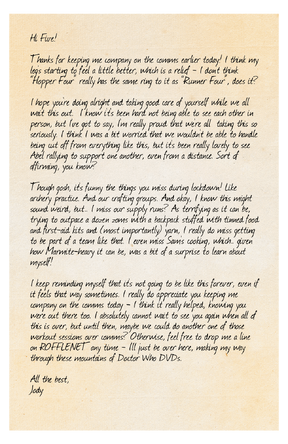 Hi Five!
Thanks for keeping me company on the comms earlier today! I think my
legs starting to feel a little better, which is a relief - I don't think
"Hopper Four" really has the same ring to it as "Runner Four", does it?
I hope you're doing alright and taking good care of yourself while we all
wait this out. I know it's been hard not being able to see each other in
person, but I've got to say, I'm really proud that we're all taking this so
seriously. I think I was a bit worried that we wouldn't be able to handle
being cut off from everything like this, but it's been really lovely to see
Abel rallying to support one another, even from a distance. Sort of
affirming, you know?
Though gosh, it's funny the things you miss during lockdown! Like
archery practice. And our crafting groups. And okay, I know this might
sound weird, but... I miss our supply runs? As terrifying as it can be,
trying to outpace a dozen zoms with a backpack stuffed with tinned food
and first-aid kits and (most importantly) yarn, I really do miss getting
to be part of a team like that. I even miss Sam's cooking, which... given
how Marmite-heavy it can be, was a bit of a surprise to learn about
myself!
I keep reminding myself that it's not going to be like this forever, even if
it feels that way sometimes. I really do appreciate you keeping me
company on the comms today - I think it really helped, knowing you
were out there too. I absolutely cannot wait to see you again when all of
this is over, but until then, maybe we could do another one of those
workout sessions over comms? Otherwise, feel free to drop me a line
on ROFFLENET any time - I'll just be over here, making my way
through these mountains of Doctor Who DVDs.
All the best,
Jody